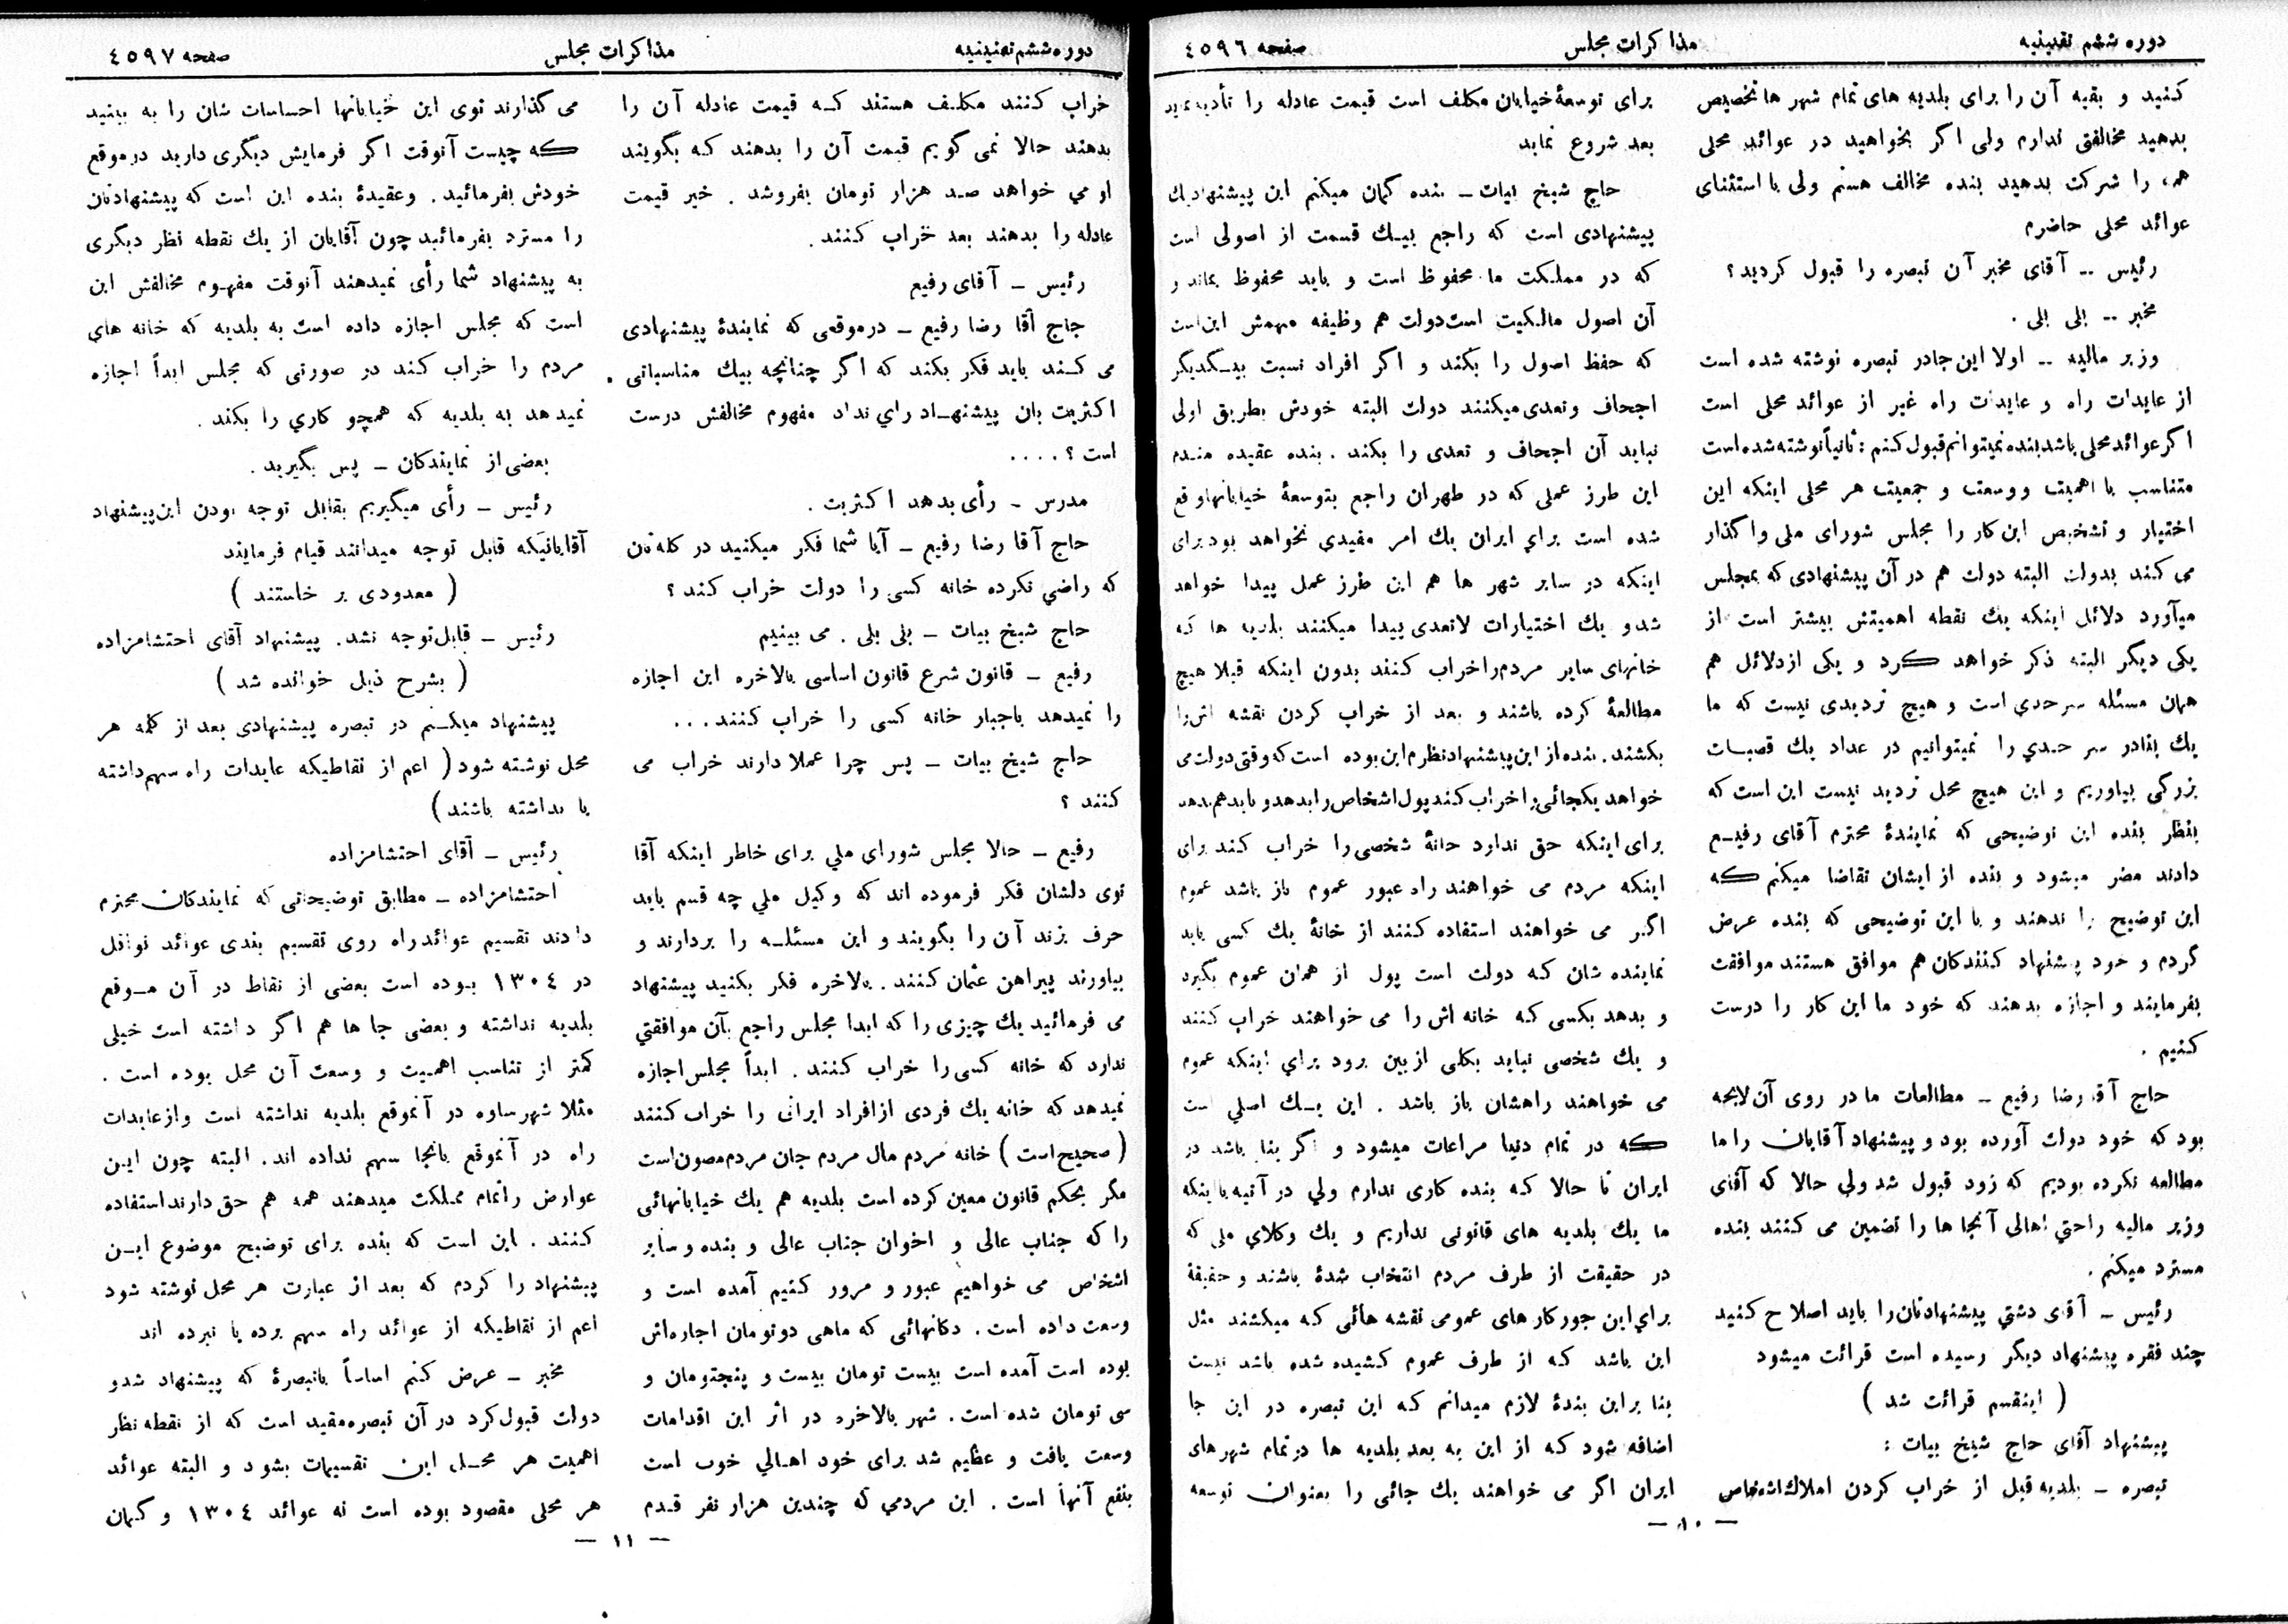 دوره ششم تقنینیه
مذاکرات مجلس
صفحه ٤٥٩٦
کنید و بقیه آن را برای بلدیه های تمام شهر ها تخصیص
بدهید مخالفتی ندارم ولی اگر بخواهید در عوائد محلی
همه را شرکت بدهید بنده مخالف هستم ولی با استثنای
عوائد محلی حاضرم
رئیس -- آقای مخبر آن تبصره را قبول کردید؟
مخبر -- بلی بلی .
وزیر مالیه -- اولا این جا در تبصره نوشته شده است
از عایدات راه و عایدات راه غیر از عوائد محلی است
اگر عوائد محلی باشد بنده نمیتوانم قبول کنم : ثانیاً نوشته شده است
متناسب با اهمیت و وسعت و جمعیت هر محلی اینکه این
اختیار و تشخیص این کار را مجلس شورای ملی واگذار
می کند بدولت البته دولت هم در آن پیشنهادی که بمجلس
میآورد دلائل اینکه یك نقطه اهمیتش بیشتر است از
یکی دیگر البته ذکر خواهد کرد و یکی از دلائل هم
همان مسئله سرحدي است و هیچ تردیدی نیست که ما
یك بنادر سر حدي را نمیتوانیم در عداد یك قصبات
بزرگی بیاوریم و این هیچ محل تردید نیست این است که
بنظر بنده این توضیحی که نمایندهٔ محترم آقای رفیع
دادند مضر میشود و بنده از ایشان تقاضا میکنم که
این توضیح را ندهند و با این توضیحی که بنده عرض
کردم و خود پیشنهاد کنندکان هم موافق هستند موافقت
بفرمایند و اجازه بدهند که خود ما این کار را درست
کنیم .
حاج آقا رضا رفیع - مطالعات ما در روی آن لایحه
بود که خود دولت آورده بود و پیشنهاد آقایان را ما
مطالعه نکرده بودیم که زود قبول شد ولي حالا که آقای
وزیر مالیه راحتي اهالی آنجا ها را تضمین می کنند بنده
مسترد میکنم .
رئیس - آقای دشتي پیشنهادتان را باید اصلاح کنید
چند فقره پیشنهاد دیگر رسیده است قرائت میشود
( اینقسم قرائت شد )
پیشنهاد آقای حاج شیخ بیات :
تبصره - بلدیه قبل از خراب کردن املاك اشخاص
برای توسعهٔ خیابان مکلف است قیمت عادله را تأدیه نماید
بعد شروع نماید
حاج شیخ بیات - بنده گمان میکنم این پیشنهاد یك
پیشنهادی است که راجع بیك قسمت از اصولی است
که در مملکت ما محفوظ است و باید محفوظ بماند و
آن اصول مالکیت است دولت هم وظیفه مهمش این است
که حفظ اصول را بکند و اگر افراد نسبت بیکدیگر
اجحاف و تعدی میکنند دولت البته خودش بطریق اولی
نباید آن اجحاف و تعدی را بکند . بنده عقیده مندم
این طرز عملی که در طهران راجع بتوسعهٔ خیابانها واقع
شده است براي ایران یك امر مفیدي نخواهد بود برای
اینکه در سایر شهر ها هم این طرز عمل پیدا خواهد
شد و یك اختیارات لاتعدی پیدا میکنند بلدیه ها که
خانهای سایر مردم را خراب کنند بدون اینکه قبلا هیچ
مطالعهٔ کرده باشند و بعد از خراب کردن نقشه اش را
بکشند. بنده از این پیشنهاد نظرم این بوده است که وقتی دولت می
خواهد یکجائی را خراب کند پول اشخاص را بدهد و باید هم بدهد
برای اینکه حق ندارد خانهٔ شخصی را خراب کند برای
اینکه مردم می خواهند راه عبور عموم باز باشد عموم
اگر می خواهند استفاده کنند از خانهٔ یك کسی باید
نماینده شان که دولت است پول از همان عموم بگیرد
و بدهد بکسی که خانه اش را می خواهند خراب کنند
و یك شخصی نباید بکلی از بین برود براي اینکه عموم
می خواهند راهشان باز باشد . این یك اصلي است
که در تمام دنیا مراعات میشود و اگر بنا باشد در
ایران تا حالا که بنده کاری ندارم ولي در آتیه با اینکه
ما یك بلدیه های قانونی نداریم و یك وکلاي ملی که
در حقیقت از طرف مردم انتخاب شدهٔ باشند و حقیقة
براي این جور کار های عمومی نقشه هائی که میکشند مثل
این باشد که از طرف عموم کشیده شده باشد نیست
بنا براین بندهٔ لازم میدانم که این تبصره در این جا
اضافه شود که از این به بعد بلدیه ها در تمام شهر های
ایران اگر می خواهند یك جائی را بعنوان توسعه
— ١٠ —
دوره ششم تقنینیه
مذاکرات مجلس
صفحه ٤٥٩٧
خراب کنند مکلف هستند که قیمت عادله آن را
بدهند حالا نمی گویم قیمت آن را بدهند که بگویند
او مي خواهد صد هزار تومان بفروشد . خیر قیمت
عادله را بدهند بعد خراب کنند .
رئیس - آقای رفیع
حاج آقا رضا رفیع - در موقعی که نمایندهٔ پیشنهادی
می کند باید فکر بکند که اگر چنانچه بیك مناسباتی
اکثریت بان پیشنهاد راي نداد مفهوم مخالفش درست
است ؟ . . . .
مدرس - رأی بدهد اکثریت .
حاج آقا رضا رفیع - آیا شما فکر میکنید در کله تان
که راضي نکرده خانه کسی را دولت خراب کند ؟
حاج شیخ بیات - بلی بلی . می بینیم
رفیع - قانون شرع قانون اساسی بالاخره این اجازه
را نمیدهد باجبار خانه کسی را خراب کنند . . .
حاج شیخ بیات - پس چرا عملا دارند خراب می
کنند ؟
رفیع - حالا مجلس شورای ملي برای خاطر اینکه آقا
توی دلشان فکر فرموده اند که وکیل ملي چه قسم باید
حرف بزند آن را بگویند و این مسئله را بردارند و
بیاورند پیراهن عثمان کنند . بالاخره فکر بکنید پیشنهاد
می فرمائید یك چیزی را که ابدا مجلس راجع بآن موافقتي
ندارد که خانه کسی را خراب کنند . ابداً مجلس اجازه
نمیدهد که خانه یك فردی از افراد ایرانی را خراب کنند
( صحیح است ) خانه مردم مال مردم جان مردم مصون است
مگر بحکم قانون معین کرده است بلدیه هم یك خیابانهائی
را که جناب عالی و اخوان جناب عالی و بنده و سایر
اشخاص می خواهیم عبور و مرور کنیم آمده است و
وسعت داده است . دکانهائی که ماهی دو تومان اجاره اش
بوده است آمده است بیست تومان بیست و پنجتومان و
سی تومان شده است . شهر بالاخره در اثر این اقدامات
وسعت یافت و عظیم شد برای خود اهالي خوب است
بنفع آنها است . این مردمي که چندین هزار نفر قدم
می گذارند توی این خیابانها احساسات شان را به بینید
که چیست آنوقت اگر فرمایش دیگری دارید در موقع
خودش بفرمائید . و عقیدهٔ بنده این است که پیشنهادتان
را مسترد بفرمائید چون آقایان از یك نقطه نظر دیگری
به پیشنهاد شما رأی نمیدهند آنوقت مفهوم مخالفش این
است که مجلس اجازه داده است به بلدیه که خانه هاي
مردم را خراب کند در صورتی که مجلس ابداً اجازه
نمیدهد به بلدیه که همچو کاري را بکند .
بعضی از نمایندکان - پس بگیرید .
رئیس - رأی میگیریم بقابل توجه بودن این پیشنهاد
آقایانیکه قابل توجه میدانند قیام فرمایند
( معدودی بر خاستند )
رئیس - قابل توجه نشد. پیشنهاد آقای احتشامزاده
( بشرح ذیل خوانده شد )
پیشنهاد میکنم در تبصره پیشنهادی بعد از کلمه هر
محل نوشته شود ( اعم از نقاطیکه عایدات راه سهم داشته
یا نداشته باشند )
رئیس - آقای احتشامزاده
احتشامزاده - مطابق توضیحاتی که نمایندکان محترم
دادند تقسیم عوائد راه روی تقسیم بندی عوائد نواقل
در ١٣٠٤ بوده است بعضی از نقاط در آن موقع
بلدیه نداشته و بعضی جا ها هم اگر داشته است خیلی
کمتر از تناسب اهمیت و وسعت آن محل بوده است .
مثلا شهر ساوه در آنموقع بلدیه نداشته است و از عایدات
راه در آنموقع بانجا سهم نداده اند. البته چون این
عوارض را تمام مملکت میدهند همه هم حق دارند استفاده
کنند . این است که بنده برای توضیح موضوع این
پیشنهاد را کردم که بعد از عبارت هر محل نوشته شود
اعم از نقاطیکه از عوائد راه سهم برده یا نبرده اند
مخبر - عرض کنم اساساً باتبصرهٔ که پیشنهاد شد و
دولت قبول کرد در آن تبصره مقید است که از نقطه نظر
اهمیت هر محل این تقسیمات بشود و البته عوائد
هر محلی مقصود بوده است نه عوائد ١٣٠٤ و گمان
— ١١ —